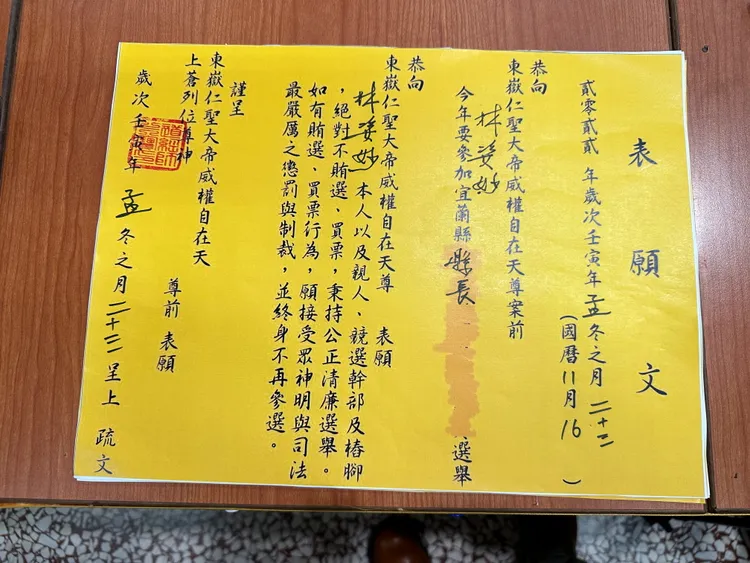 表願文
貳零貳貳 年歲次壬寅年孟冬之月二十三
(國曆11月16 )
恭向
東嶽仁聖大帝威權自在天尊案前
林姿妙
今年要參加宜蘭縣縣長 選舉
恭向
東嶽仁聖大帝威權自在天尊 表願
林姿妙本人以及親人、競選幹部及樁腳
，絕對不賄選、買票，秉持公正清廉選舉。
如有賄選、買票行為，願接受眾神明與司法
最嚴厲之懲罰與制裁，並終身不再參選。
謹呈
東嶽仁聖大帝威權自在天
上蒼列位尊神
尊前 表願
歲次壬寅年 孟冬之月二十三呈上 疏文